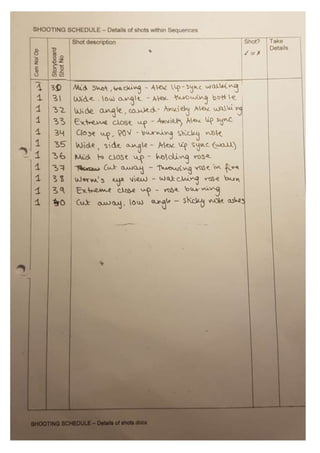 SHOOTING SCHEDULE – Details of shots within Sequences
Cam No/ Op
Storyboard Shot No
Shot description
Shot? ✓ or ✗
Take Details
1 30 Mid shot, tracking - Alex lip-sync walking
1 31 Wide, low angle - Alex throwing bottle
1 32 Wide angle, canted - Anxiety Alex walking
1 33 Extreme close up - Anxiety Alex lip sync
1 34 Close up, POV - burning sticky note
1 35 Wide, side angle - Alex lip sync (wall)
1 36 Mid to close up - holding rose
1 37 Cut away - Throwing rose in fire
1 38 Worm's eye view - watching rose burn
1 39 Extreme close up - rose burning
1 40 Cut away, low angle - sticky note ashes
SHOOTING SCHEDULE – Details of shots.docx